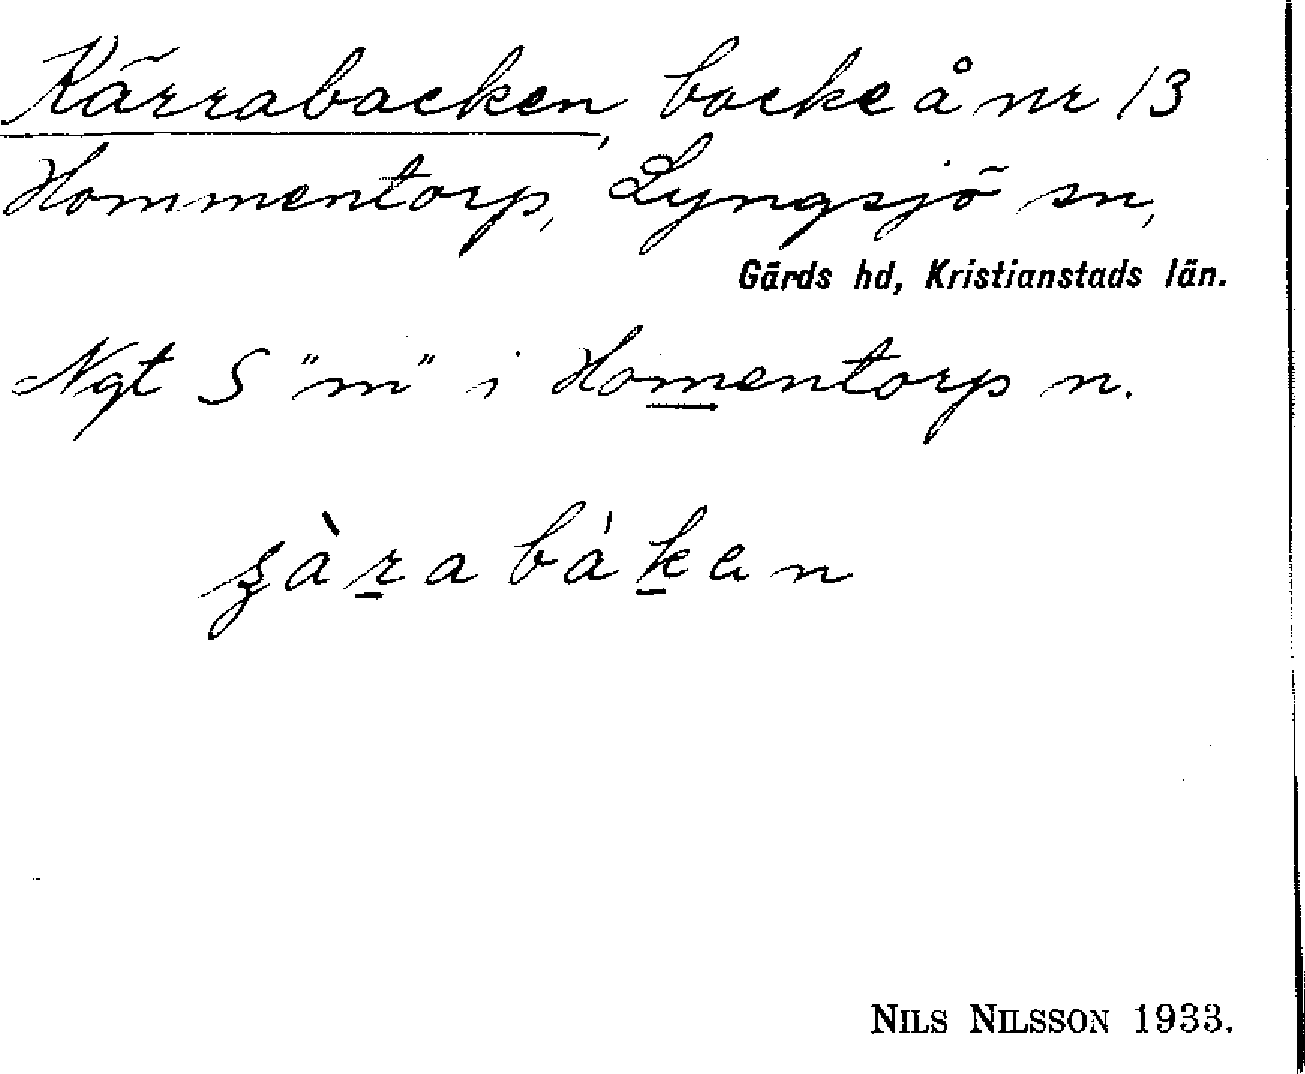 Kärrabacken, backe å nr 13
Hommentorp, Lyngsjö sn,
Gärds hd, Kristianstads län.
Ngt S "m" i Homentorp n.
bàḵen
NILS NILSSON 1933.